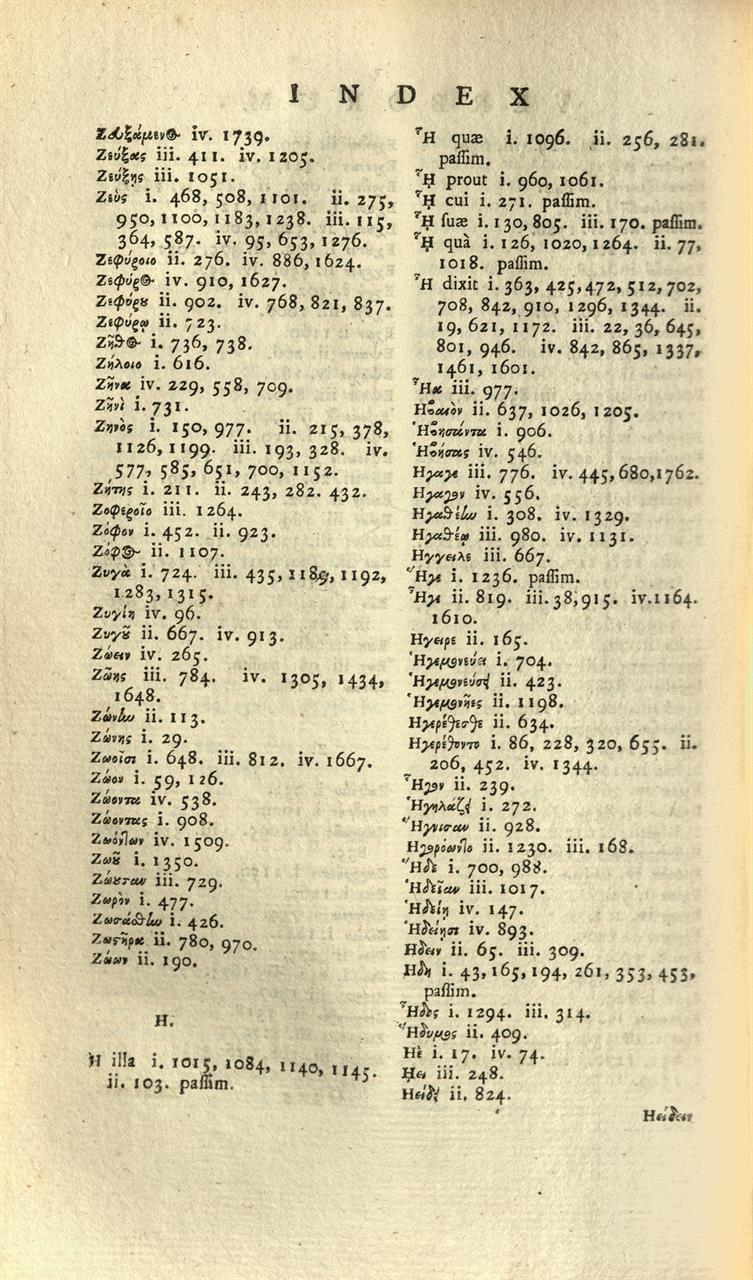 INDEX
Ζευξάμενος iv. 1739.
Ζεύξας iii. 411. iv. 1205.
Ζεύξῃς iii. 1051.
Ζεὺς i. 468, 508, 1101. ii. 275,
950, 1100, 1183, 1238. iii. 115,
364, 587. iv. 95, 653, 1276.
Ζεφύροιο ii. 276. iv. 886, 1624.
Ζεφύρος iv. 910, 1627.
Ζεφύρου ii. 902. iv. 768, 821, 837.
Ζεφύρῳ ii. 723.
Ζῆθος i. 736, 738.
Ζήλοιο i. 616.
Ζῆνα iv. 229, 558, 709.
Ζῆνὶ i. 731.
Ζηνὸς i. 150, 977. ii. 215, 378,
1126, 1199. iii. 193, 328. iv.
577, 585, 651, 700, 1152.
Ζήτης i. 211. ii. 243, 282. 432.
Ζοφεροῖο iii. 1264.
Ζόφον i. 452. ii. 923.
Ζόφος ii. 1107.
Ζυγὰ i. 724. iii. 435, 1189, 1192,
1283, 1315.
Ζυγίη iv. 96.
Ζυγοῦ ii. 667. iv. 913.
Ζώειν iv. 265.
Ζωῆς iii. 784. iv. 1305, 1434,
1648.
Ζώνην ii. 113.
Ζώνης i. 29.
Ζωοῖσι i. 648. iii. 812. iv. 1667.
Ζώον i. 59, 126.
Ζώοντα iv. 538.
Ζώοντας i. 908.
Ζωόντων iv. 1509.
Ζωοῦ i. 1350.
Ζώουσαν iii. 729.
Ζωρὸν i. 477.
Ζωσάσθην i. 426.
Ζωστῆρα ii. 780, 970.
Ζώων ii. 190.
H.
Ἡ illa i. 1015, 1084, 1140, 1145.
ii. 103. paſſim.
Ἣ quæ i. 1096. ii. 256, 281.
paſſim.
Ἧι prout i. 960, 1061.
Ἧι cui i. 271. paſſim.
Ἧι ſuæ i. 130, 805. iii. 170. paſſim.
Ἧι quà i. 126, 1020, 1264. ii. 77,
1018. paſſim.
Ἦ dixit i. 363, 425, 472, 512, 702,
708, 842, 910, 1296, 1344. ii.
19, 621, 1172. iii. 22, 36, 645,
801, 946. iv. 842, 865, 1337,
1461, 1601.
Ἧκα iii. 977.
Ηβαιὸν ii. 637, 1026, 1205.
Ἡβησάντα i. 906.
Ἡβήσας iv. 546.
Ηγαγε iii. 776. iv. 445, 680, 1762.
Ηγαγον iv. 556.
Ηγαθέην i. 308. iv. 1329.
Ηγαθέῃ iii. 980. iv. 1131.
Ηγγειλε iii. 667.
Ἥγε i. 1236. paſſim.
Ἦγε ii. 819. iii. 38, 915. iv. 1164.
1610.
Ηγειρε ii. 165.
Ἡγεμονεύει i. 704.
Ἡγεμονεύσει ii. 423.
Ἡγεμονῆες ii. 1198.
Ηγερέθεσθε ii. 634.
Ηγερέθοντο i. 86, 228, 320, 655. ii.
206, 452. iv. 1344.
Ἦγον ii. 239.
Ἡγηλάζει i. 272.
Ἥγνισαν ii. 928.
Ηγορόωντο ii. 1230. iii. 168.
Ἥδε i. 700, 988.
Ἡδεῖαν iii. 1017.
Ἡδείη iv. 147.
Ἡδείῃσι iv. 893.
Ηδειν ii. 65. iii. 309.
Ηδη i. 43, 165, 194, 261, 353, 453,
paſſim.
Ἦδος i. 1294. iii. 314.
Ἥδυμος ii. 409.
Ηὲ i. 17. iv. 74.
Ηει iii. 248.
Ηείδει ii. 824.
Ηείδειν